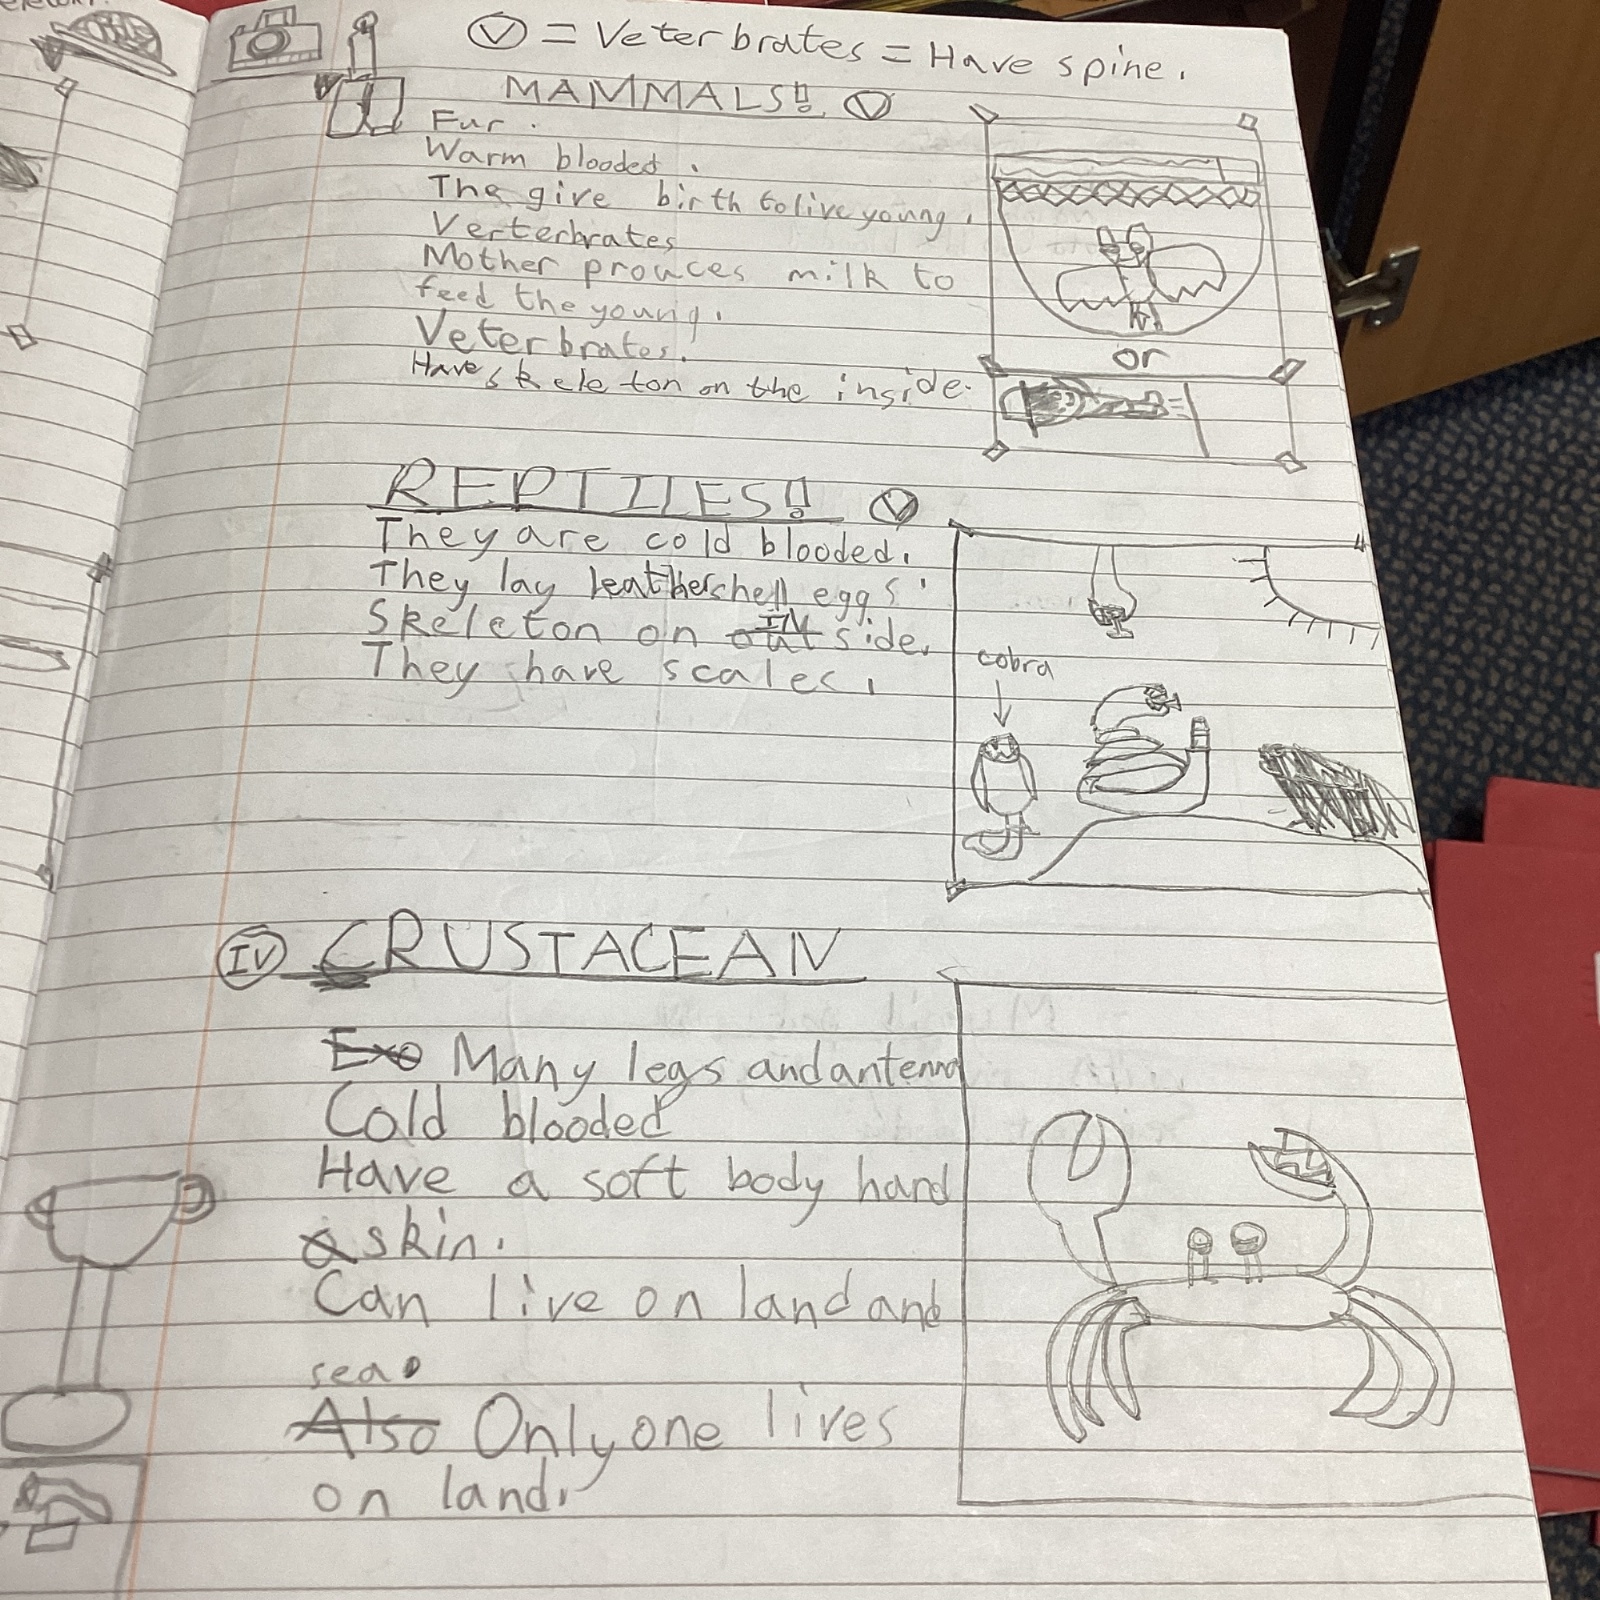 Ⓥ = Veterbrates = Have spine.
MAMMALS!! Ⓥ
Fur.
Warm blooded.
The give birth to live young.
Verterbrates
Mother prouces milk to
feed the young.
Veterbrates.
Have skeleton on the inside.
or
REPTILES!! Ⓥ
They are cold blooded.
They lay leathershell eggs
IN
Skeleton on out side.
They have scales.
cobra
IV CRUSTACEAN
Exo Many legs and antenna
Cold blooded
Have a soft body hard
a skin.
Can live on land and
sea.
Also Only one lives
on land.